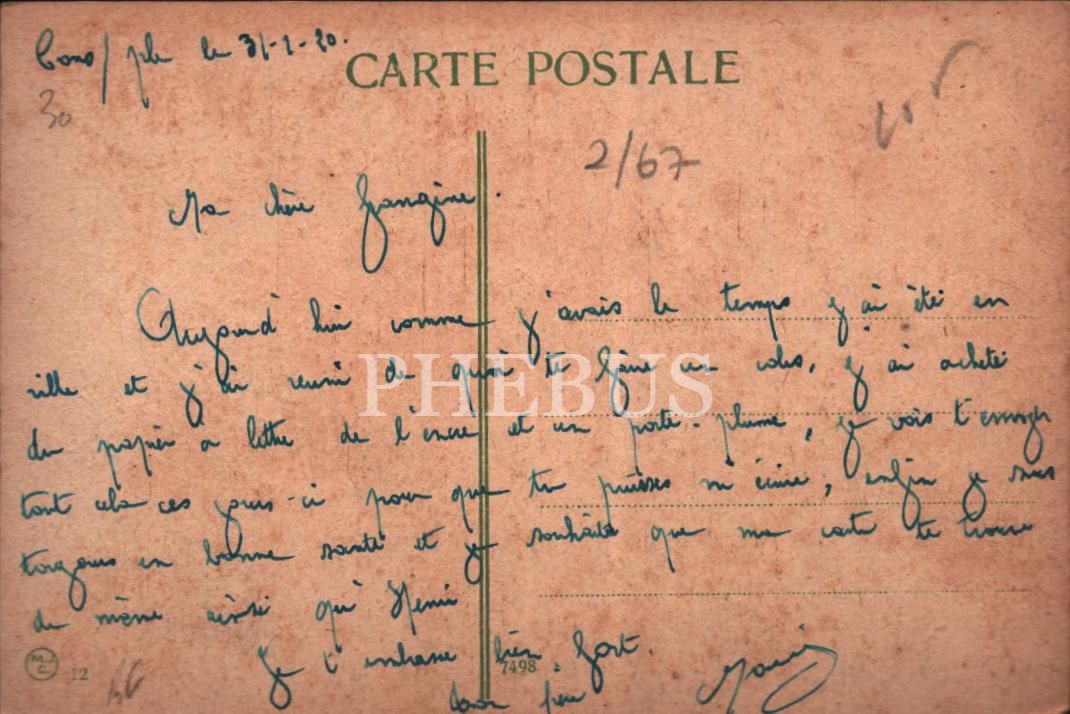 Cons/ple le 31-1-20.
CARTE POSTALE
30
2/67
Ma chère Frangine.
Aujourd'hui comme j'avais le temps j'ai été en
ville et j'ai réuni de quoi te faire un colis, j'ai acheté
du papier à lettre de l'encre et un porte-plume, je vais t'envoyer
tout cela ces jours-ci pour que tu puisses m'écrire, enfin je suis
toujours en bonne santé et je souhaite que ma carte te trouve
de même ainsi qu'Henri
Je t'embrasse bien fort.
ton frère
PHEBUS
M.J.C.
12
7498